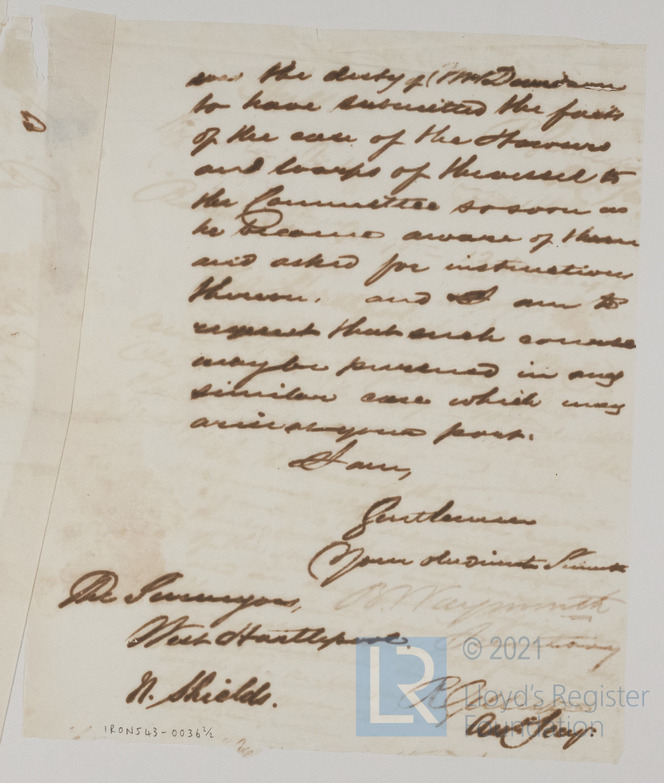 was the duty of Mr Davidson
to have submitted the facts
of the case of the Hawsers
and Warps of the vessel to
the Committee so soon as
he became aware of them
and asked for instructions
thereon. and I am to
request that such course
may be pursued in any
similar case which may
arise at your port.
I am,
Gentlemen
Your obedient Servant
The Surveyors,
B Waymouth
West Hartlepool
Secretary
N. Shields.
© 2021
LR
Lloyd's Register
Foundation
Asst Secy:
IRON543-0036 1/2